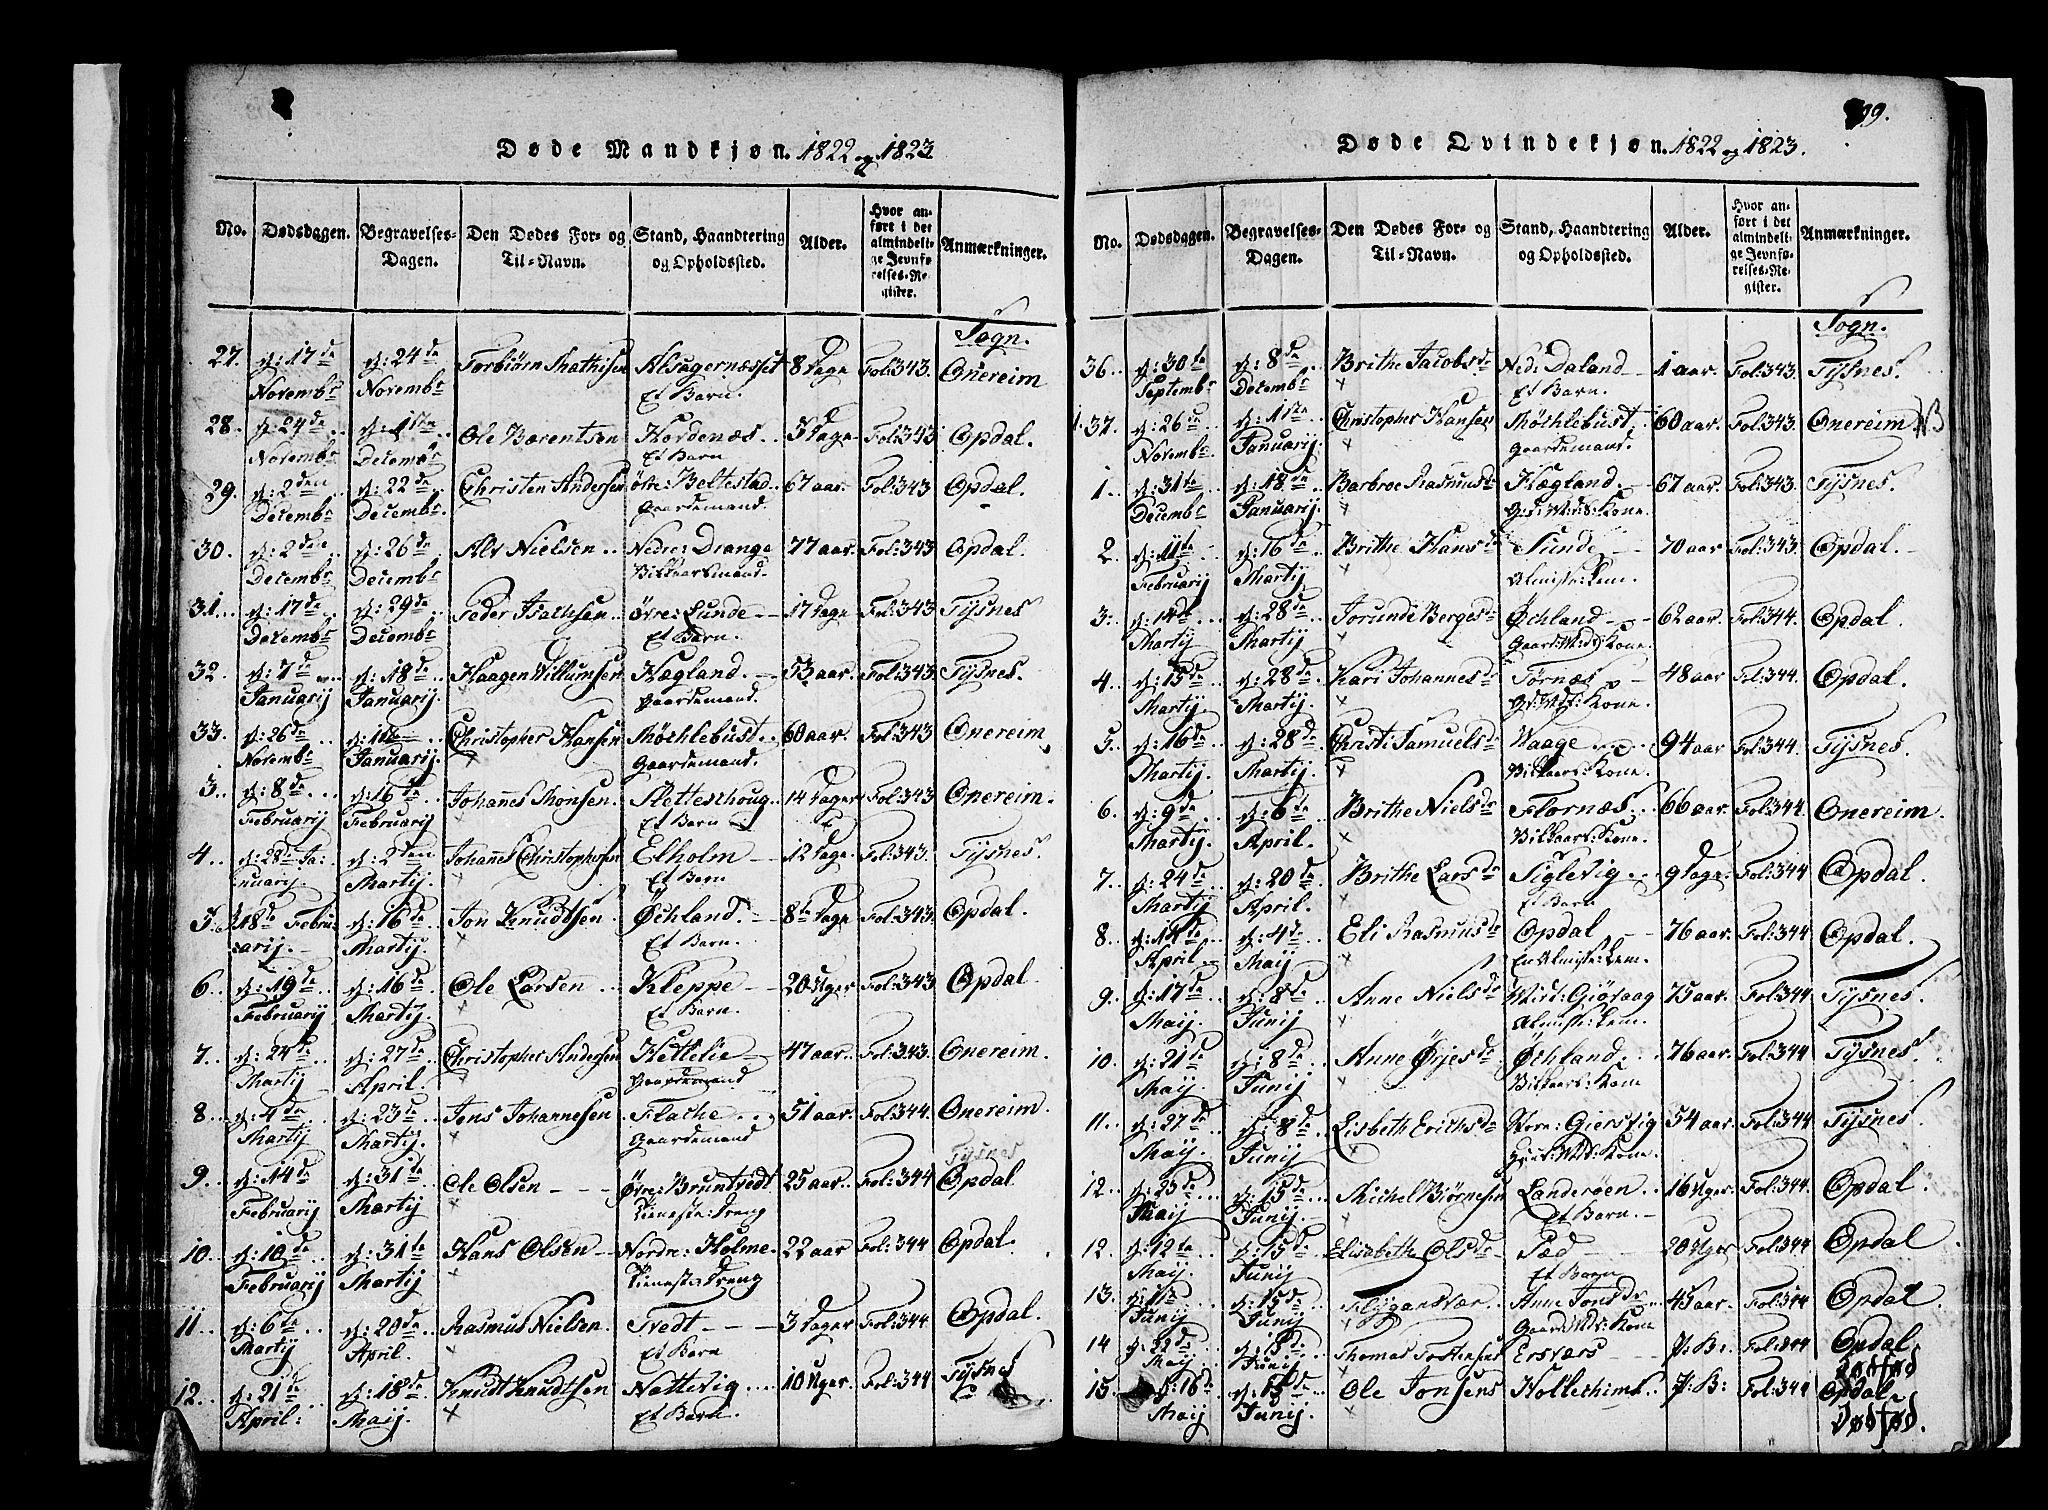 Døde Mandkjøn. 1822 og 1823
No. Dødsdagen. Begravelses-Dagen. Den Dødes For- og Til-Navn. Stand, Haandtering og Opholdssted. Alder. Hvor anført i det almindelige Jevnførelses-Register. Anmærkninger.
Sogn.
27. d: 17de d: 24de Torbiørn Mathisen Alsagernæsset 8 Dage Fol: 343. Onereim
Novembr Novembr Et Barn.
28. d: 24de d: 1ste Ole Barentsen Hordenæs 5 Dage Fol: 343 Opdal.
Novembr Decembr Et Barn
29. d: 2den d: 22de Christen Andersen øvre: Beltestad 67 aar. Fol: 343 Opdal.
Decembr Decembr. Gaardemand.
30. d: 2den d: 26de Alv Nielsen Nedre: Drange 77 aar. Fol: 343 Opdal.
Decembr Decembr Vilkaarsmand.
31. d: 17de d: 29de Peder Mathisen Øvre: Lunde 17 Dage Fol: 343 Tysnes
Decembr Decembr Et Barn.
32. d: 7de d: 18de Haagen Villumsen Hægland. 53 aar. Fol: 343. Tysnes.
Januarij Januarij. Gaardemand.
33. d: 26de d: 1ste Christopher Hansen Møchlebust 60 aar. Fol: 343 Onereim
Novembr Januarij. Gaardemand.
3. d: 8de d: 16de Johannes Monsen Sletteschoug 14 Dager Fol: 343 Onereim.
Februarij Februarij Et Barn
4. d: 28de Ja- d: 2den Johannes Christophersen Elholm 12 Dage Fol: 343. Tysnes.
nuarij. Martij. Et Barn
5. d 18de Febru d: 16de Jon Knudtsen Øchland. 8te Dage Fol: 343. Opdal.
arij. Martij. Et Barn.
6. d: 19de d: 16de Ole Larsen Kleppe 20 Uger Fol: 343 Opdal.
Februarij Martij. Et Barn.
7. d: 24de d: 27de Christopher Andersen Hettelie 47 aar. Fol: 343. Onereim.
Martij April. Gaardemand
8. d: 4de d: 23de Jens Johannesen Flathe 51 aar. Fol: 344. Onereim.
Martij Martij. Gaardemand
Tysnes
9. d: 14de d: 31te Ole Olsen Øvre: Bruntvedt 25 aar. Fol: 344 Opdal
Februarij Martij Tieneste: Dreng
10. d: 10de d: 31te Hans Olsen Nordre: Holme. 22 aar Fol: 344 Opdal.
Februarij Martij Tieneste: Dreng
11. d: 6te d: 20de Rasmus Nielsen. Tvedt 3 Dager Fol: 344. Opdal.
Martij April. Et Barn
12. d: 21de d: 18de Knudt Knudtsen Nattevig 10 Uger. Fol: 344 Tysnes
April: Maij. Et Barn.
99.
Døde Qvindekjøn. 1822 og 1823.
No. Dødsdagen. Begravelses-Dagen. Den Dødes For- og Til-Navn. Stand, Haandtering og Opholdssted. Alder. Hvor anført i det almindelige Jevnførelses-Register. Anmærkninger.
Sogn.
36. d: 30te d: 8de Brithe Jacobsdr Ned: Daland 1 aar. Fol: 343. Tysnes.
Septembr Decembr Et Barn.
37. d: 26de d: 1ste Christopher Hansen Møchlebust 60 aar. Fol: 343. Onereim NB
Novembr. Januarij. Gaardemand.
1. d: 31te d: 18de Barbroe Rasmusdr Hægland. 67 aar. Fol: 343. Tysnes.
Decembr Januarij. G: d: Md: s: Kone.
2. d: 11te d: 16de Brithe Hansdr Sunde 70 aar Fol: 343. Opdal.
Februarij Martij. Almisse: Lem.
3. d: 14de d: 28de Jorunde Bergesdr Øchland 62 aar Fol: 344. Opdal.
Martij Martij Gaard: Md: Kone.
4. d: 15de d: 28de Kari Johannesdr Tornæs 48 aar Fol: 344. Opdal.
Martij. Martij. Gd: Md: Kone.
5. d: 16de d: 28de Christ: Samuelsdr Waage 94 aar Fol: 344. Tysnes.
Martij. Martij. Vilkaars: Kone.
6. d: 9de d: 6te Brithe Nielsdr Flornæs 66 aar. Fol: 344 Onereim.
Martij. April. Vilkaars: Kone.
7. d: 24de d: 20de Brithe Larsdr Siglevig 9 Dage Fol: 344 Opdal.
Martij April. Et Barn
8. d: 14de d: 4de Eli Rasmusdr Opdal 76 aar. Fol: 344 Opdal.
April. Maij. En Almisse: Lem.
9. d: 17de d: 8de Anne Nielsdr Giøsaag 75 aar. Fol: 344 Tysnes.
Maij. Junij Almisse: Lem.
10. d: 21de d: 8de Anne Øyesdr Øchland. 76 aar. Fol: 344 Tysnes.
Maij. Junij Vilkaars: Kone
11. d: 27de d: 8de Lisbeth Erichsdr Giersvig 54 aar. Fol: 344. Tysnes.
Maij. Junij Kone.
12. d: 23de d: 15de Michel Biørnesen Landerøen 16 Uger. Fol: 344. Opdal.
Maij Junij. Et Barn.
12. d: 12te d: 15de Elisabethe Olsdr Pæd 20 Uger Fol: 344 Opdal
Maij. Junij Et Barn
13. d: 1ste d: 15de Flygansvær Anne Jonsdr 43 aar Fol: 344 Opdal
Junij Junij. Gaard: Mds: Kone
14 d: 22de d: 15de Thomas Tostensens Ersværs D: B: Fol: 344 Opdal
Maij. Junij. Dødfød
15. d: 16de d: 15de Ole Jonsens D: B: Fol: 344 Opdal.
Maij Junij. Dødfød.